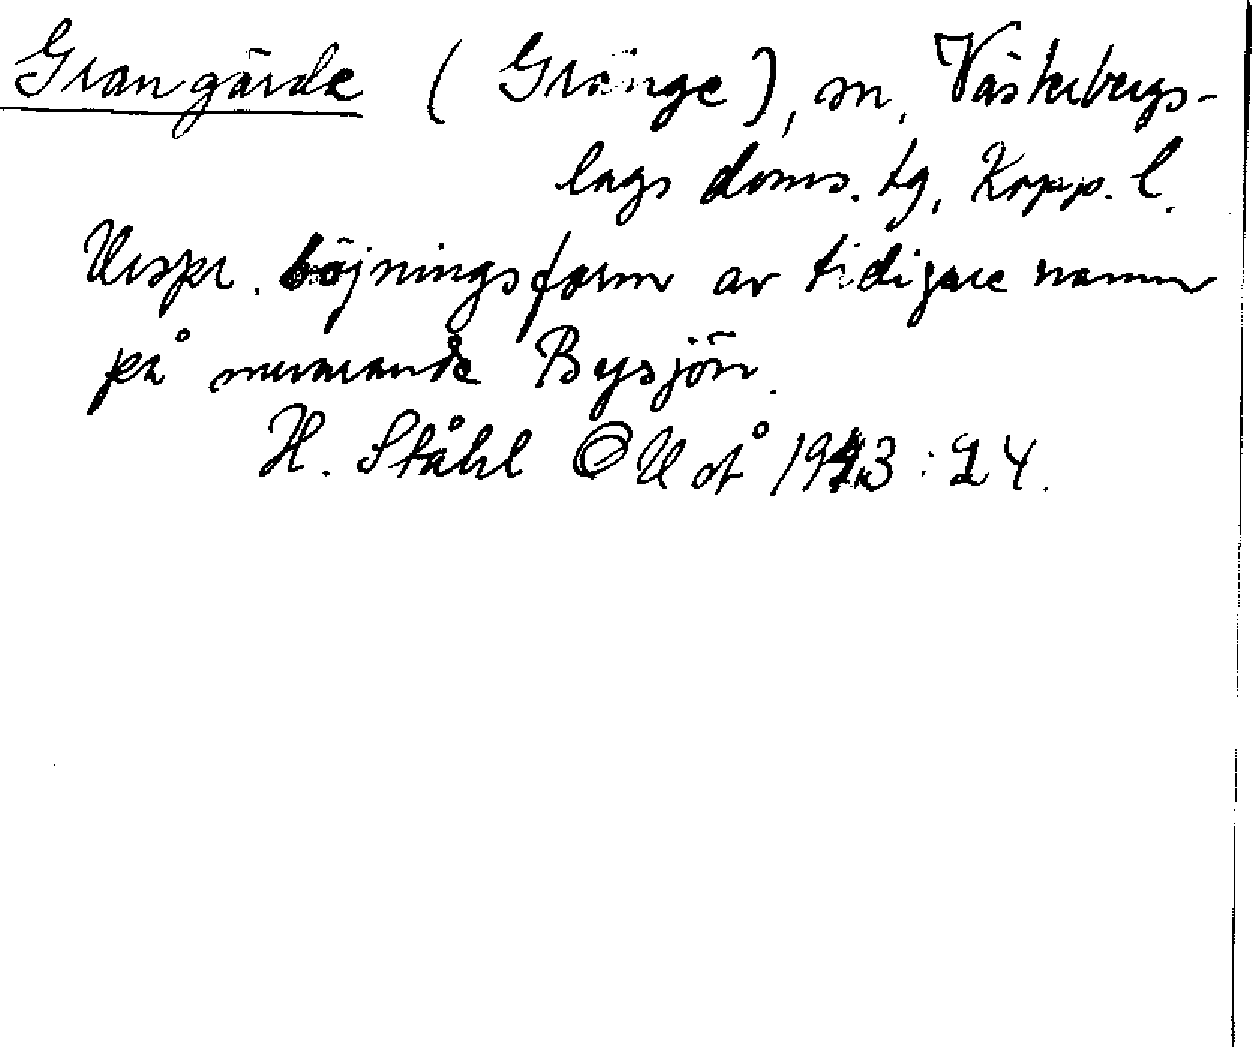 Grangärde (Gränge), sn, Västerbergs-
lags doms. tg, Kopp. l.
Urspr. böjningsform av tidigare namn
på nuvarande Bysjön.
H. Ståhl OUÅ 1943:24.